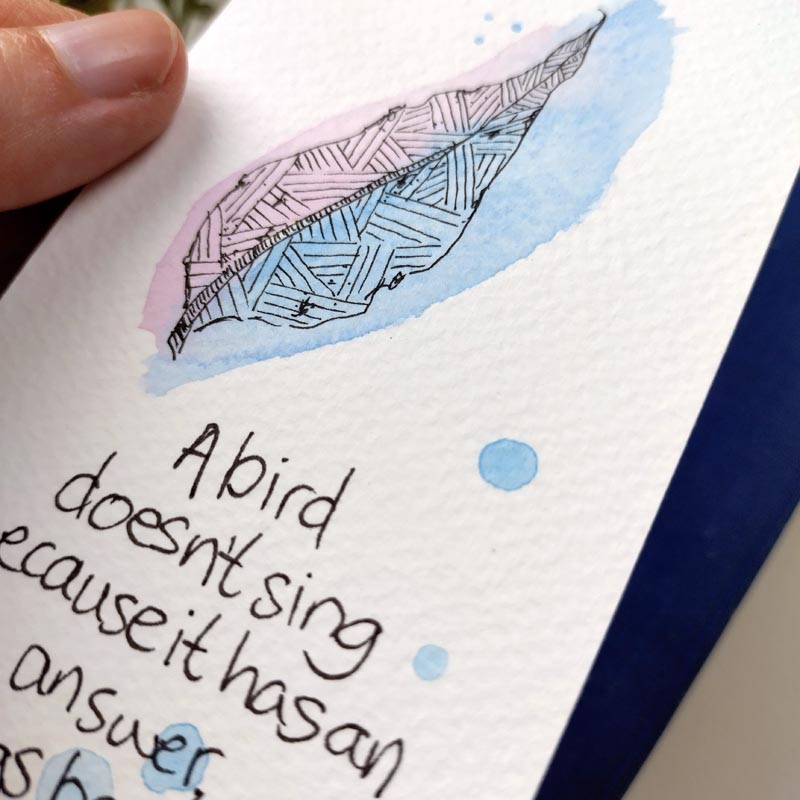 A bird
doesn't sing
ecause it has an
answer,